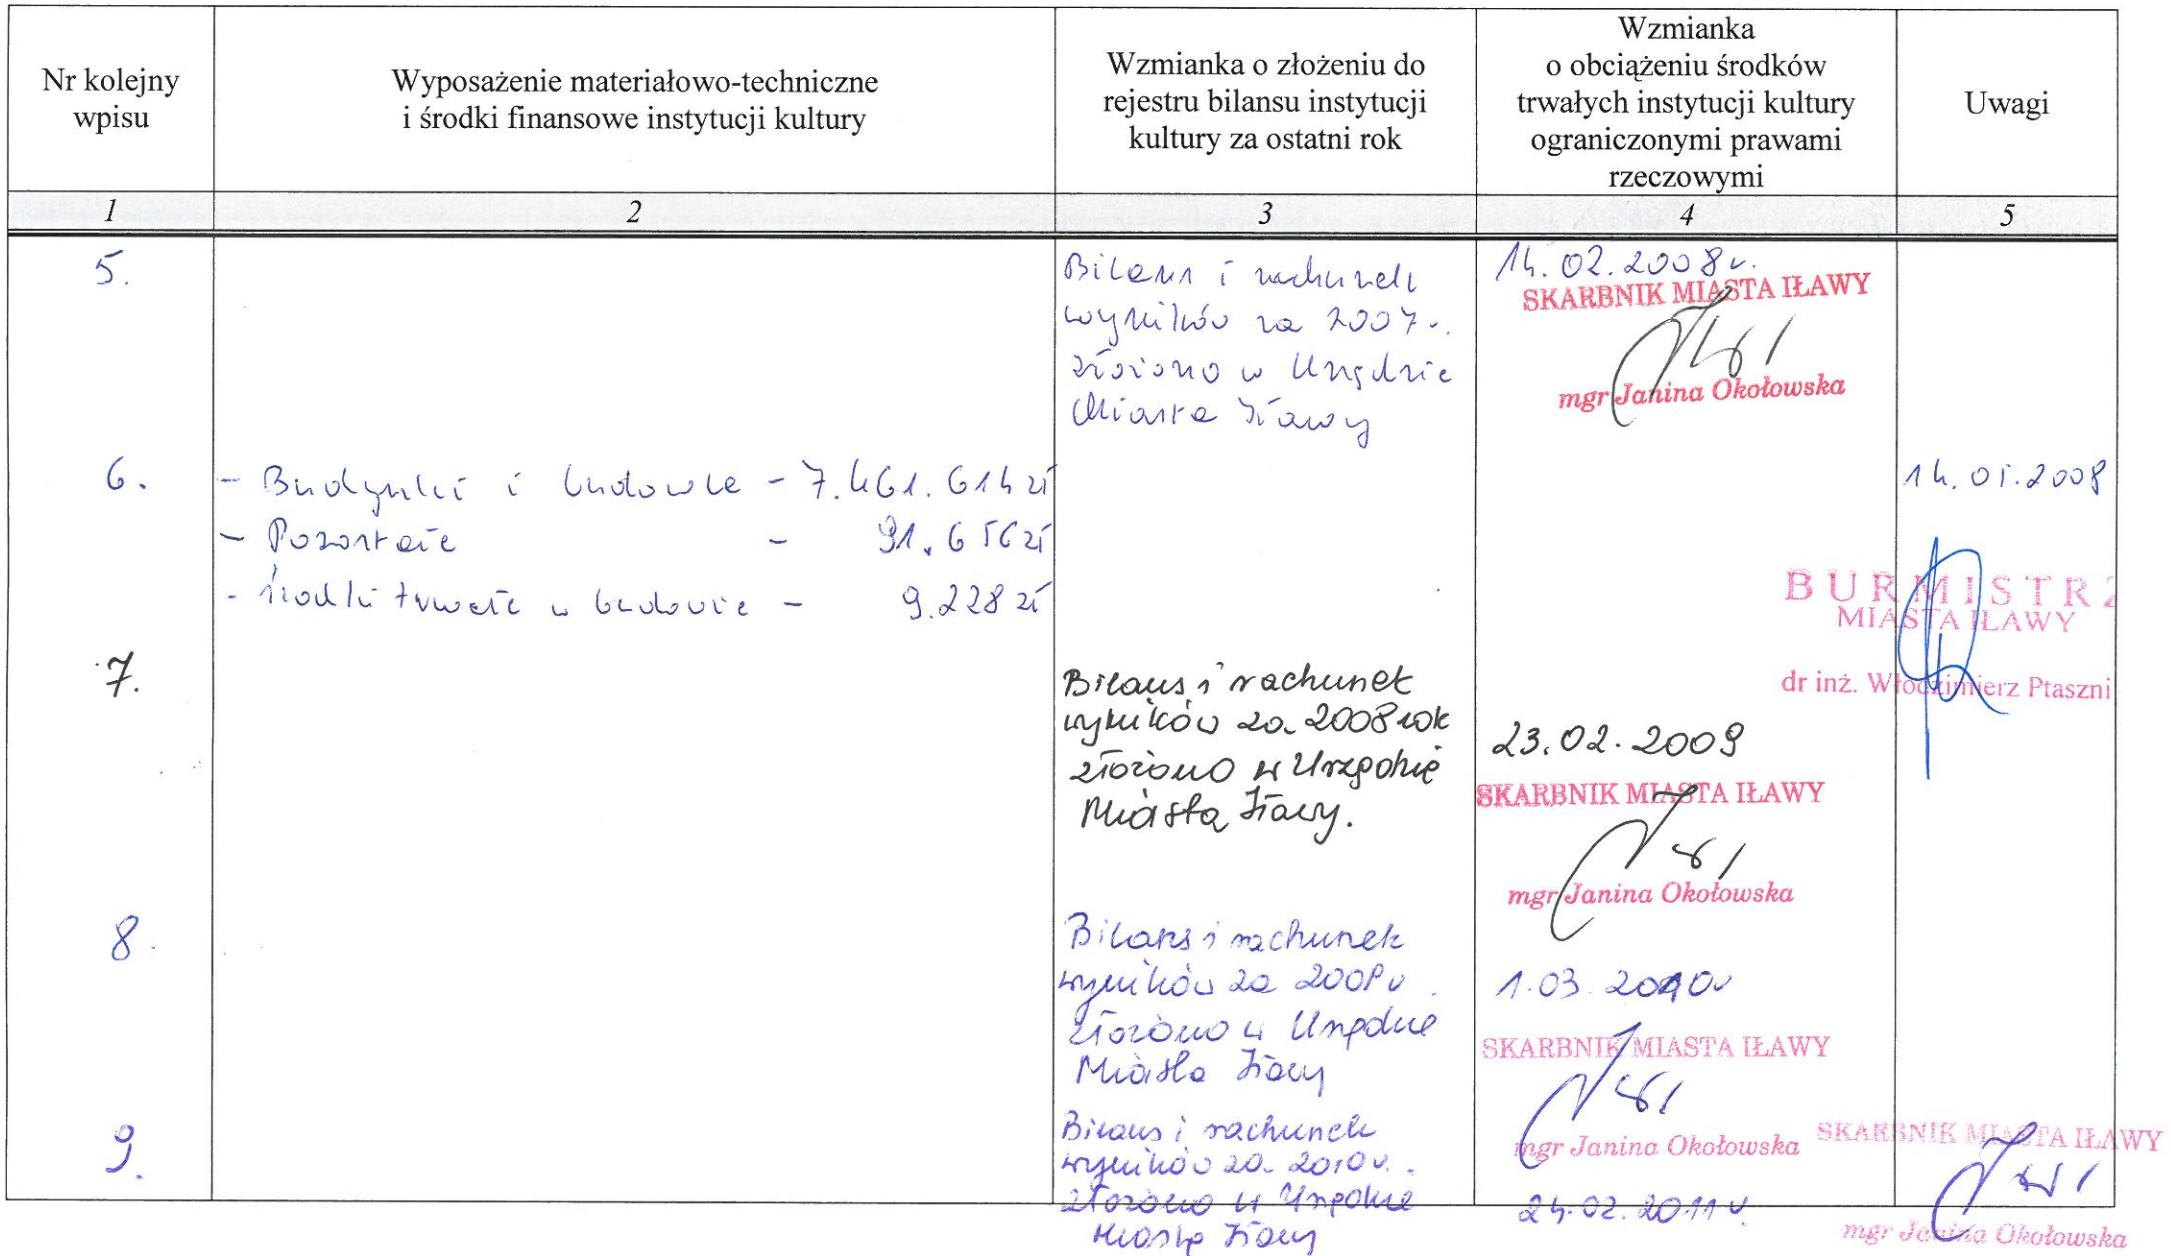 Nr kolejny
wpisu
Wyposażenie materiałowo-techniczne
i środki finansowe instytucji kultury
Wzmianka o złożeniu do
rejestru bilansu instytucji
kultury za ostatni rok
Wzmianka
o obciążeniu środków
trwałych instytucji kultury
ograniczonymi prawami
rzeczowymi
Uwagi
1 2 3 4 5
5.
Bilans i rachunek
wyników za 2007 r.
złożono w Urzędzie
Miasta Iławy
14.02.2008 r.
SKARBNIK MIASTA IŁAWY
mgr Janina Okołowska
6.
- Budynki i budowle - 7.461.614 zł
- Pozostałe - 91.656 zł
- środki trwałe w budowie - 9.228 zł
14.05.2008
BURMISTRZ
MIASTA IŁAWY
dr inż. Włodzimierz Ptaszni
7.
Bilans i rachunek
wyników za 2008 rok
złożono w Urzędzie
Miasta Iławy.
23.02.2009
SKARBNIK MIASTA IŁAWY
mgr Janina Okołowska
8.
Bilans i rachunek
wyników za 2009 r.
złożono w Urzędzie
Miasta Iławy
1.03.2010 r
SKARBNIK MIASTA IŁAWY
mgr Janina Okołowska
9.
Bilans i rachunek
wyników za 2010 r.
złożono w Urzędzie
Miasta Iławy
24.02.2011 r.
SKARBNIK MIASTA IŁAWY
mgr Janina Okołowska